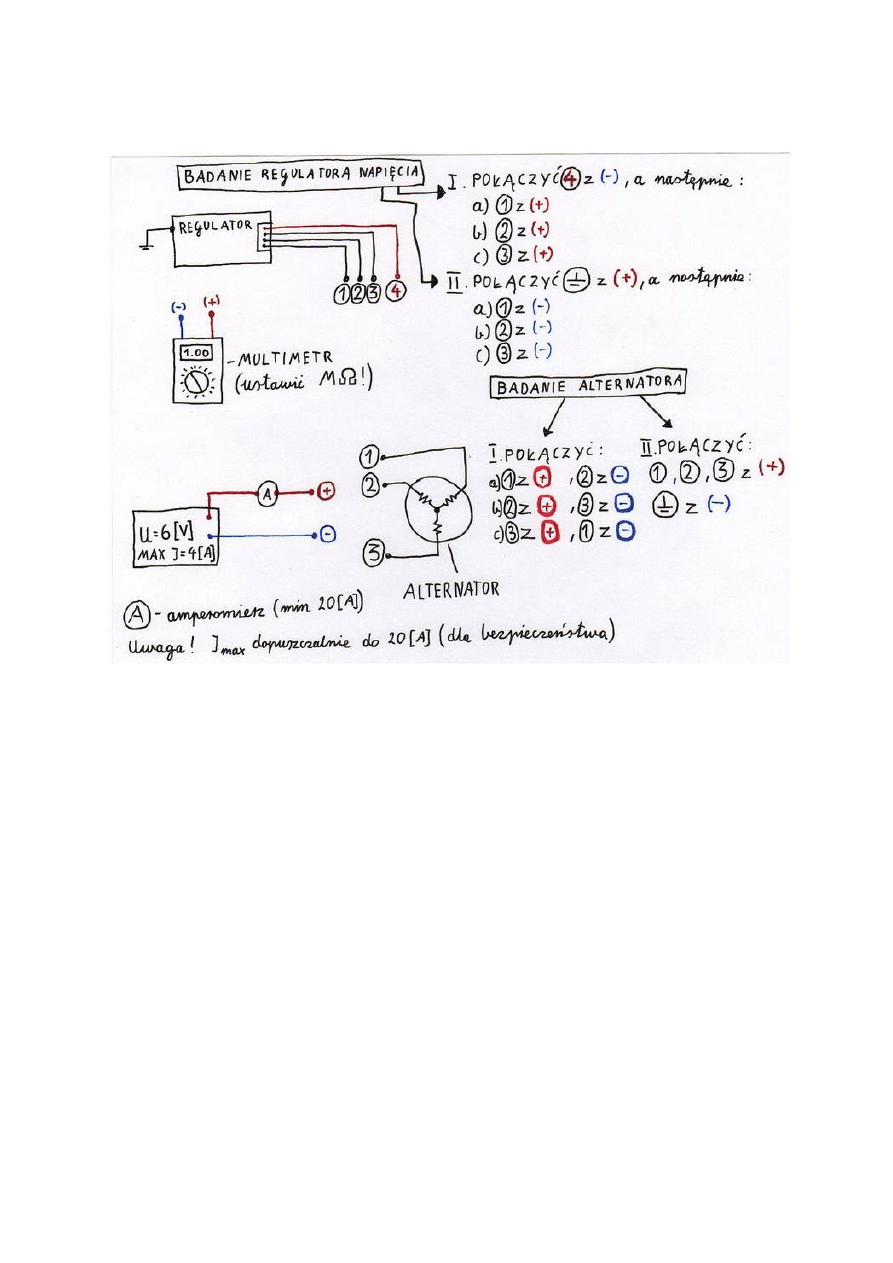 BADANIE REGULATORA NAPIĘCIA
I. POŁĄCZYĆ ④ z (-), a następnie:
a) ① z (+)
b) ② z (+)
c) ③ z (+)
REGULATOR
① ② ③ ④
II. POŁĄCZYĆ ⏚ z (+), a następnie:
a) ① z (-)
b) ② z (-)
c) ③ z (-)
(-) (+)
1.00
- MULTIMETR
(ustawić MΩ!)
BADANIE ALTERNATORA
I. POŁĄCZYĆ:
a) ① z +, ② z -
b) ② z +, ③ z -
c) ③ z +, ① z -
II. POŁĄCZYĆ:
①, ②, ③ z (+)
⏚ z (-)
①
②
③
A +
-
U=6[V]
MAX J=4[A]
ALTERNATOR
Ⓐ - amperomierz (min 20[A])
Uwaga! Jmax dopuszczalnie do 20[A] (dla bezpieczeństwa)